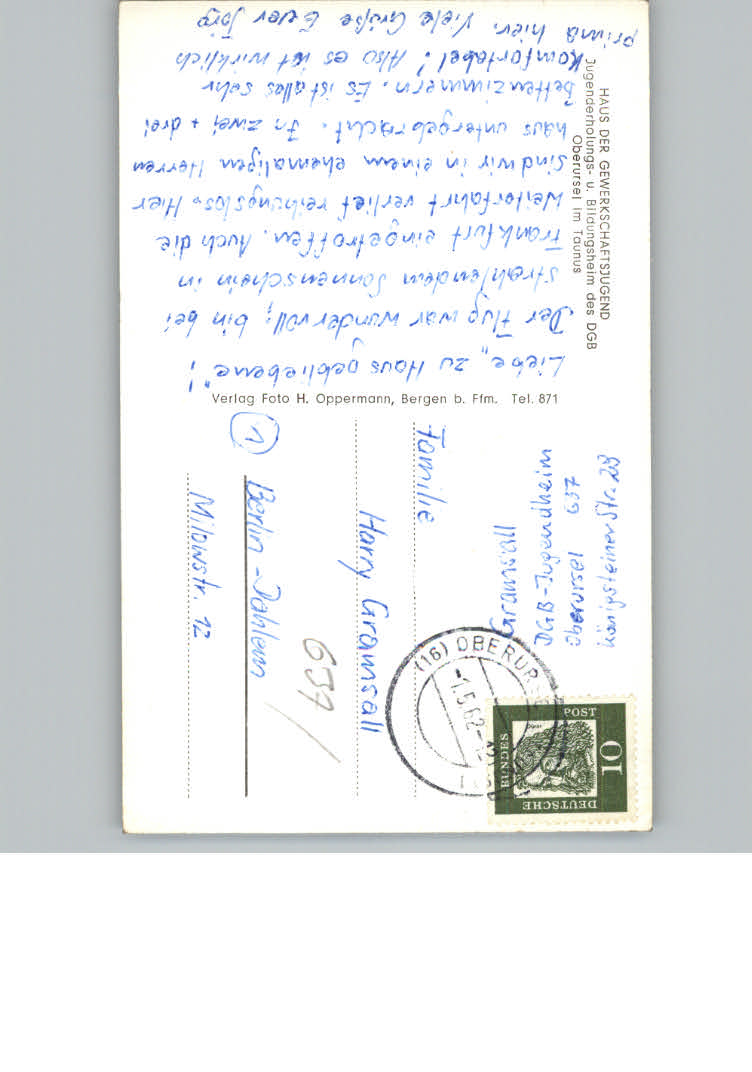 HAUS DER GEWERKSCHAFTSJUGEND
Jugenderholungs- u. Bildungsheim des DGB
Oberursel im Taunus
Liebe „zu Haus gebliebene"!
Der Flug war wundervoll; bin bei
strahlendem Sonnenschein in
Frankfurt eingetroffen. Auch die
Weiterfahrt verlief reibungslos. Hier
sind wir in einem ehemaligen Herren
haus untergebracht. In zwei + drei
bettenzimmern. Es ist alles sehr
Komfortabel! Also es ist wirklich
prima hier. Viele Grüße Euer Jörg
Verlag Foto H. Oppermann, Bergen b. Ffm. Tel. 871
Gramsall
DGB-Jugendheim
Oberursel 637
Königsteiner Str. 29
(16) OBERURSEL
-1.5.62
DEUTSCHE
BUNDES
POST
10
Familie
Harry Gramsall
1 Berlin-Dahlem
Milowstr. 12
637/